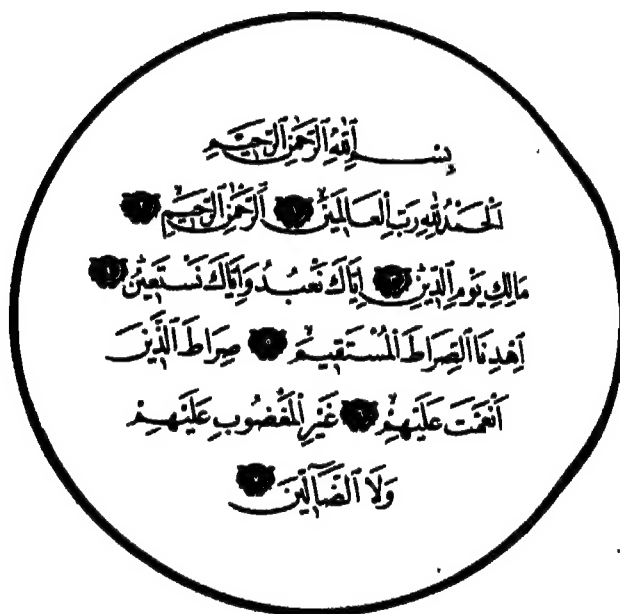 بِسْمِ ٱللَّهِ ٱلرَّحْمَٰنِ ٱلرَّحِيمِ
ٱلْحَمْدُ لِلَّهِ رَبِّ ٱلْعَالَمِينَ ١ ٱلرَّحْمَٰنِ ٱلرَّحِيمِ ٢
مَالِكِ يَوْمِ ٱلدِّينِ ٣ إِيَّاكَ نَعْبُدُ وَإِيَّاكَ نَسْتَعِينُ ٤
ٱهْدِنَا ٱلصِّرَاطَ ٱلْمُسْتَقِيمَ ٥ صِرَاطَ ٱلَّذِينَ
أَنْعَمْتَ عَلَيْهِمْ ٦ غَيْرِ ٱلْمَغْضُوبِ عَلَيْهِمْ
وَلَا ٱلضَّآلِّينَ ٧